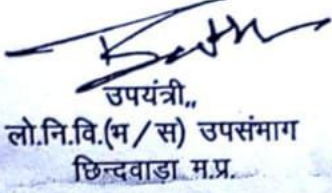 उपयंत्री,,
लो.नि.वि.(म/स) उपसंमाग
छिन्दवाडा म.प्र.